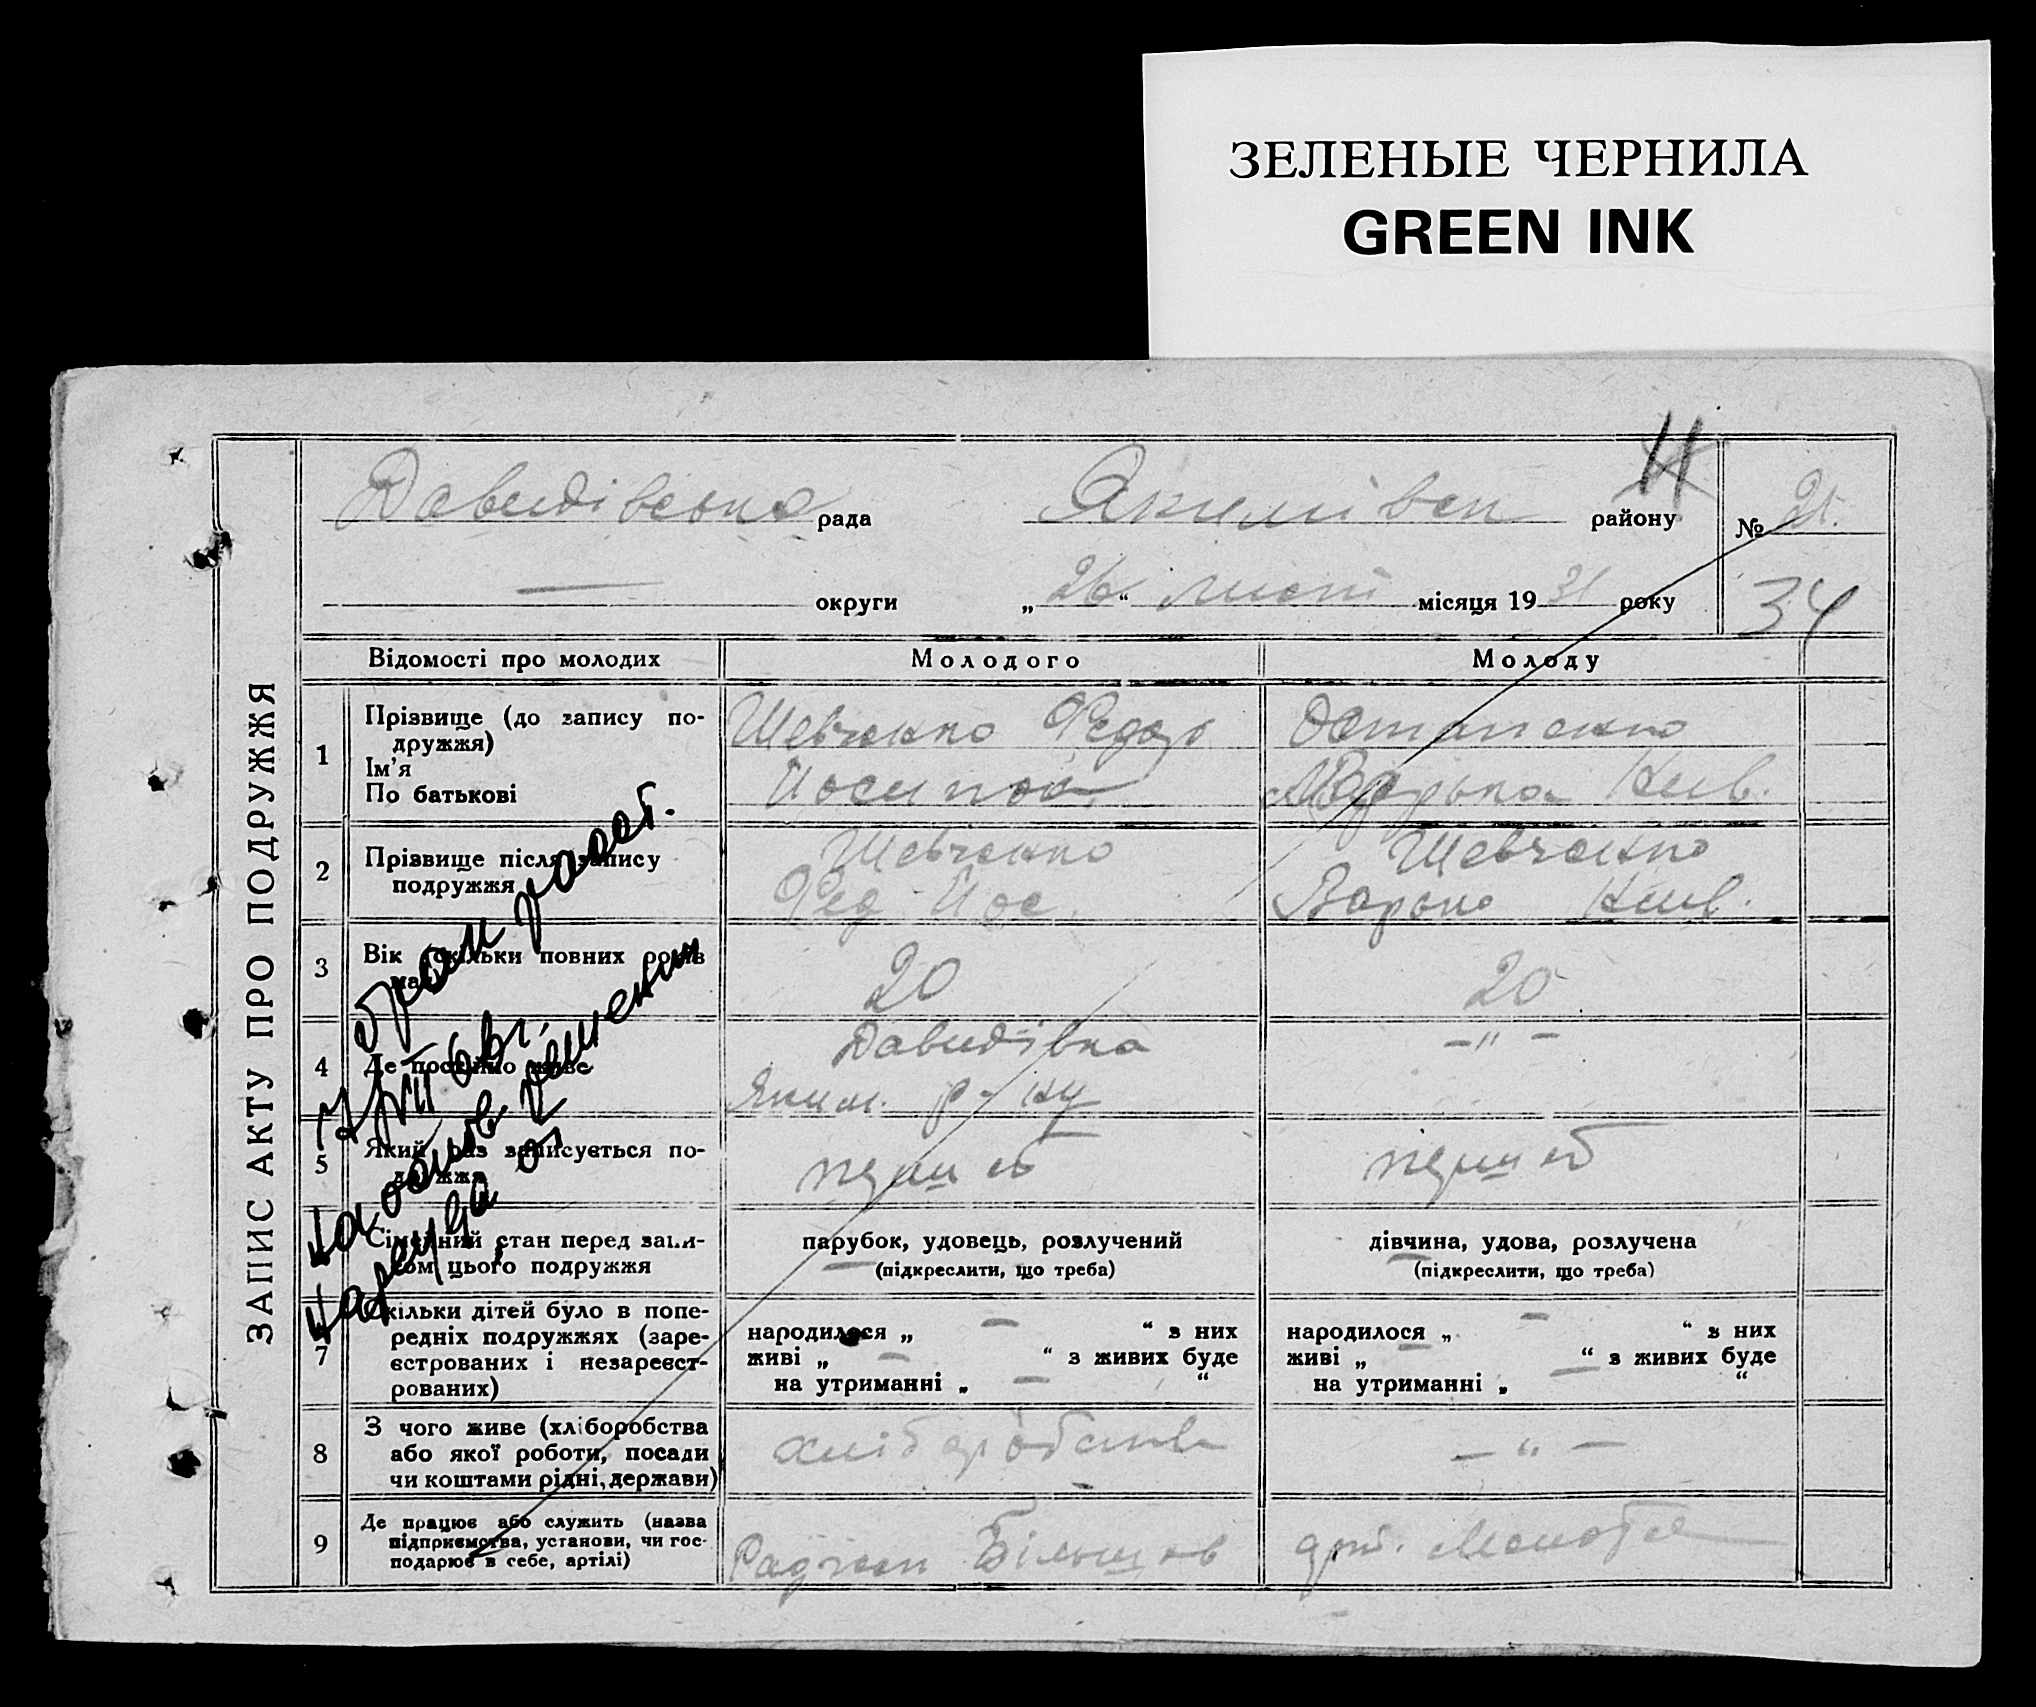 ЗЕЛЕНЫЕ ЧЕРНИЛА
GREEN INK
11
ЗАПИС АКТУ ПРО ПОДРУЖЖЯ
Давидівська рада Якимівск району № 21.
— округи „26“ лист місяця 1931 року
34
Відомості про молодих Молодого Молоду
1 Прізвище (до запису по-
дружжя)
Ім'я
По батькові
Шевченко Федор
Йосипов.
Остапенко
Варька Кив.
2 Прізвище після запису
подружжя
Шевченко
Фед Йос.
Шевченко
Варька Кив.
3 Вік (скільки повних років
має) 20 20
4 Де постійно живе
Давидівка
Яким. р-ну
— " —
5 Який раз записується по-
дружжя перший перший
Сімейний стан перед запи-
сом цього подружжя
парубок, удовець, розлучений
(підкреслити, що треба)
дівчина, удова, розлучена
(підкреслити, що треба)
7 Скільки дітей було в попе-
редніх подружжях (заре-
єстрованих і незареєст-
рованих)
народилося „ — “ з них
живі „ — “ з живих буде
на утриманні „ — “
народилося „ — “ з них
живі „ — “ з живих буде
на утриманні „ — “
8 З чого живе (хліборобства
або якої роботи, посади
чи коштами рідні, держави)
хліборобств
— " —
9 Де працює або служить (назва
підприємства, установи, чи гос-
подарює в себе, артілі)
Радгосп Більшов
арт.
Брак расст.